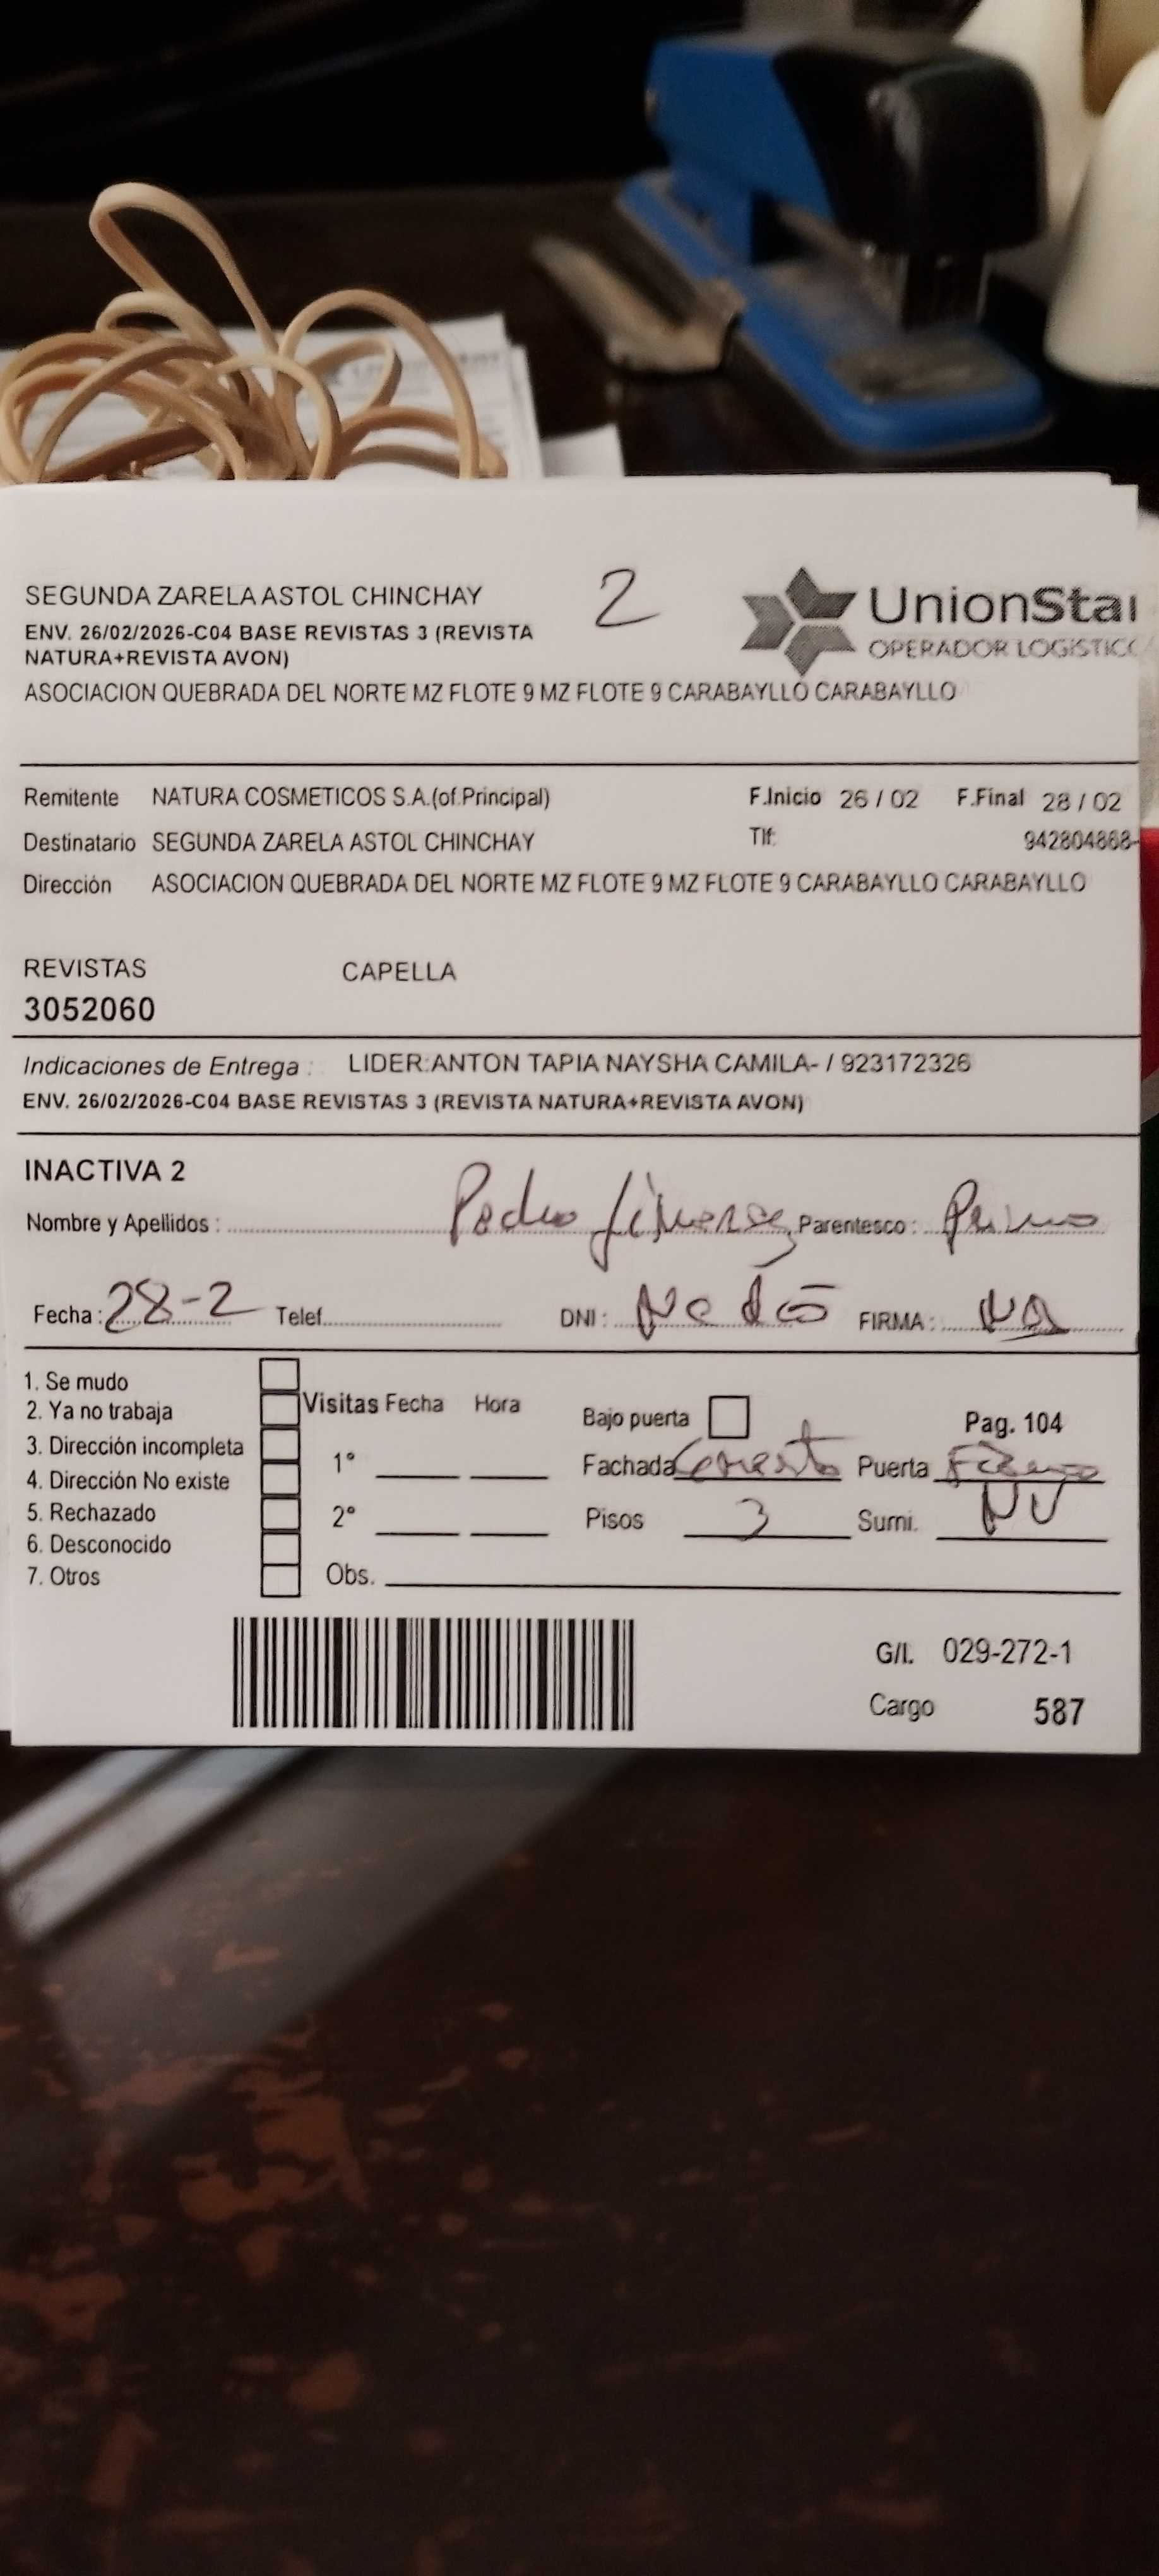 SEGUNDA ZARELA ASTOL CHINCHAY 2
UnionStar
OPERADOR LOGISTICO
ENV. 26/02/2026-C04 BASE REVISTAS 3 (REVISTA
NATURA+REVISTA AVON)
ASOCIACION QUEBRADA DEL NORTE MZ FLOTE 9 MZ FLOTE 9 CARABAYLLO CARABAYLLO
Remitente NATURA COSMETICOS S.A.(of.Principal) F.Inicio 26 / 02 F.Final 28 / 02
Destinatario SEGUNDA ZARELA ASTOL CHINCHAY Tlf: 942804868-
Dirección ASOCIACION QUEBRADA DEL NORTE MZ FLOTE 9 MZ FLOTE 9 CARABAYLLO CARABAYLLO
REVISTAS CAPELLA
3052060
Indicaciones de Entrega : LIDER:ANTON TAPIA NAYSHA CAMILA- / 923172326
ENV. 26/02/2026-C04 BASE REVISTAS 3 (REVISTA NATURA+REVISTA AVON)
INACTIVA 2
Nombre y Apellidos : Pedro Jimenez Parentesco : Primo
Fecha : 28-2 Telef. DNI : No dio FIRMA :
1. Se mudo
2. Ya no trabaja
3. Dirección incompleta
4. Dirección No existe
5. Rechazado
6. Desconocido
7. Otros
Visitas Fecha Hora
1°
2°
Obs.
Bajo puerta Pag. 104
Fachada Puerta
Pisos 3 Sumi. NV
G/I. 029-272-1
Cargo 587